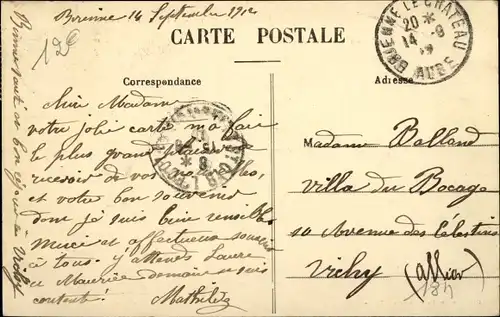 Brienne 14 Septembre 1912
12€
CARTE POSTALE
Correspondance
Adresse
BRIENNE LE CHATEAU
20 *
14 -9
12
AUBE
Chère Madame
votre jolie carte m'a fait
le plus grand plaisir de
recevoir de vos nouvelles,
et votre bon souvenir
dont je suis bien sensible.
Merci et affectueux souvenirs
à tous. j'attends Laure
et Maurice demain je suis
contente.
Mathilde
Bonne santé et bon séjour à Vichy
Madame Balland
villa du Bocage
10 Avenue des Célestins
Vichy
(Allier)
184